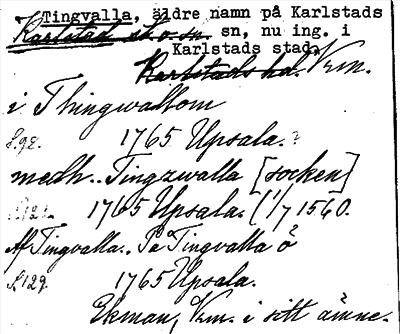 Tingvalla, äldre namn på Karlstads
Karlstad sk. o. sn. sn, nu ing. i
Karlstads stad.
Karlstads hd. Vrm.
i Thingwallom
s. 92. 1765 Upsala.
medh.. Tingzwalla [socken]
1765 Upsala. (1/7 1560.
Af Tingvalla.. På Tingvalla ö
s. 129. 1765 Upsala.
Ekman, Vrm. i sitt ämne.